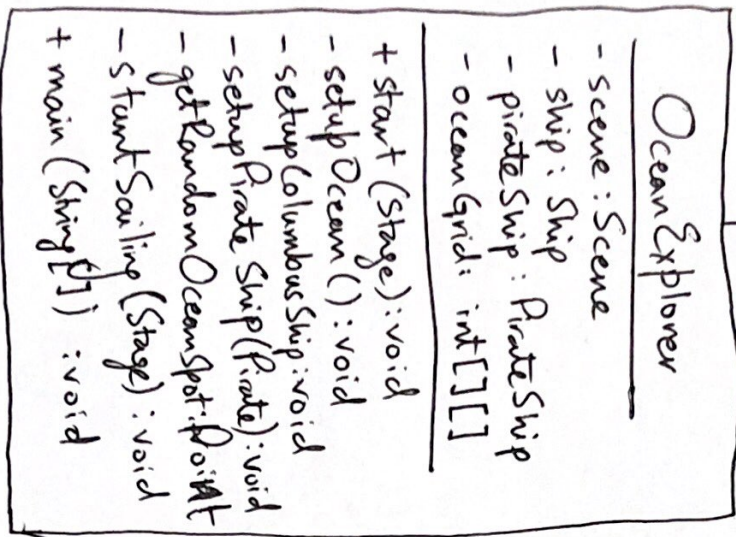 OceanExplorer
- scene : Scene
- ship : Ship
- pirateShip : PirateShip
- oceanGrid : int[][]
+ start (Stage) : void
- setupOcean () : void
- setupColumbusShip : void
- setupPirateShip (Pirate) : void
- getRandomOceanSpot : Point
- startSailing (Stage) : void
+ main (String[]) : void